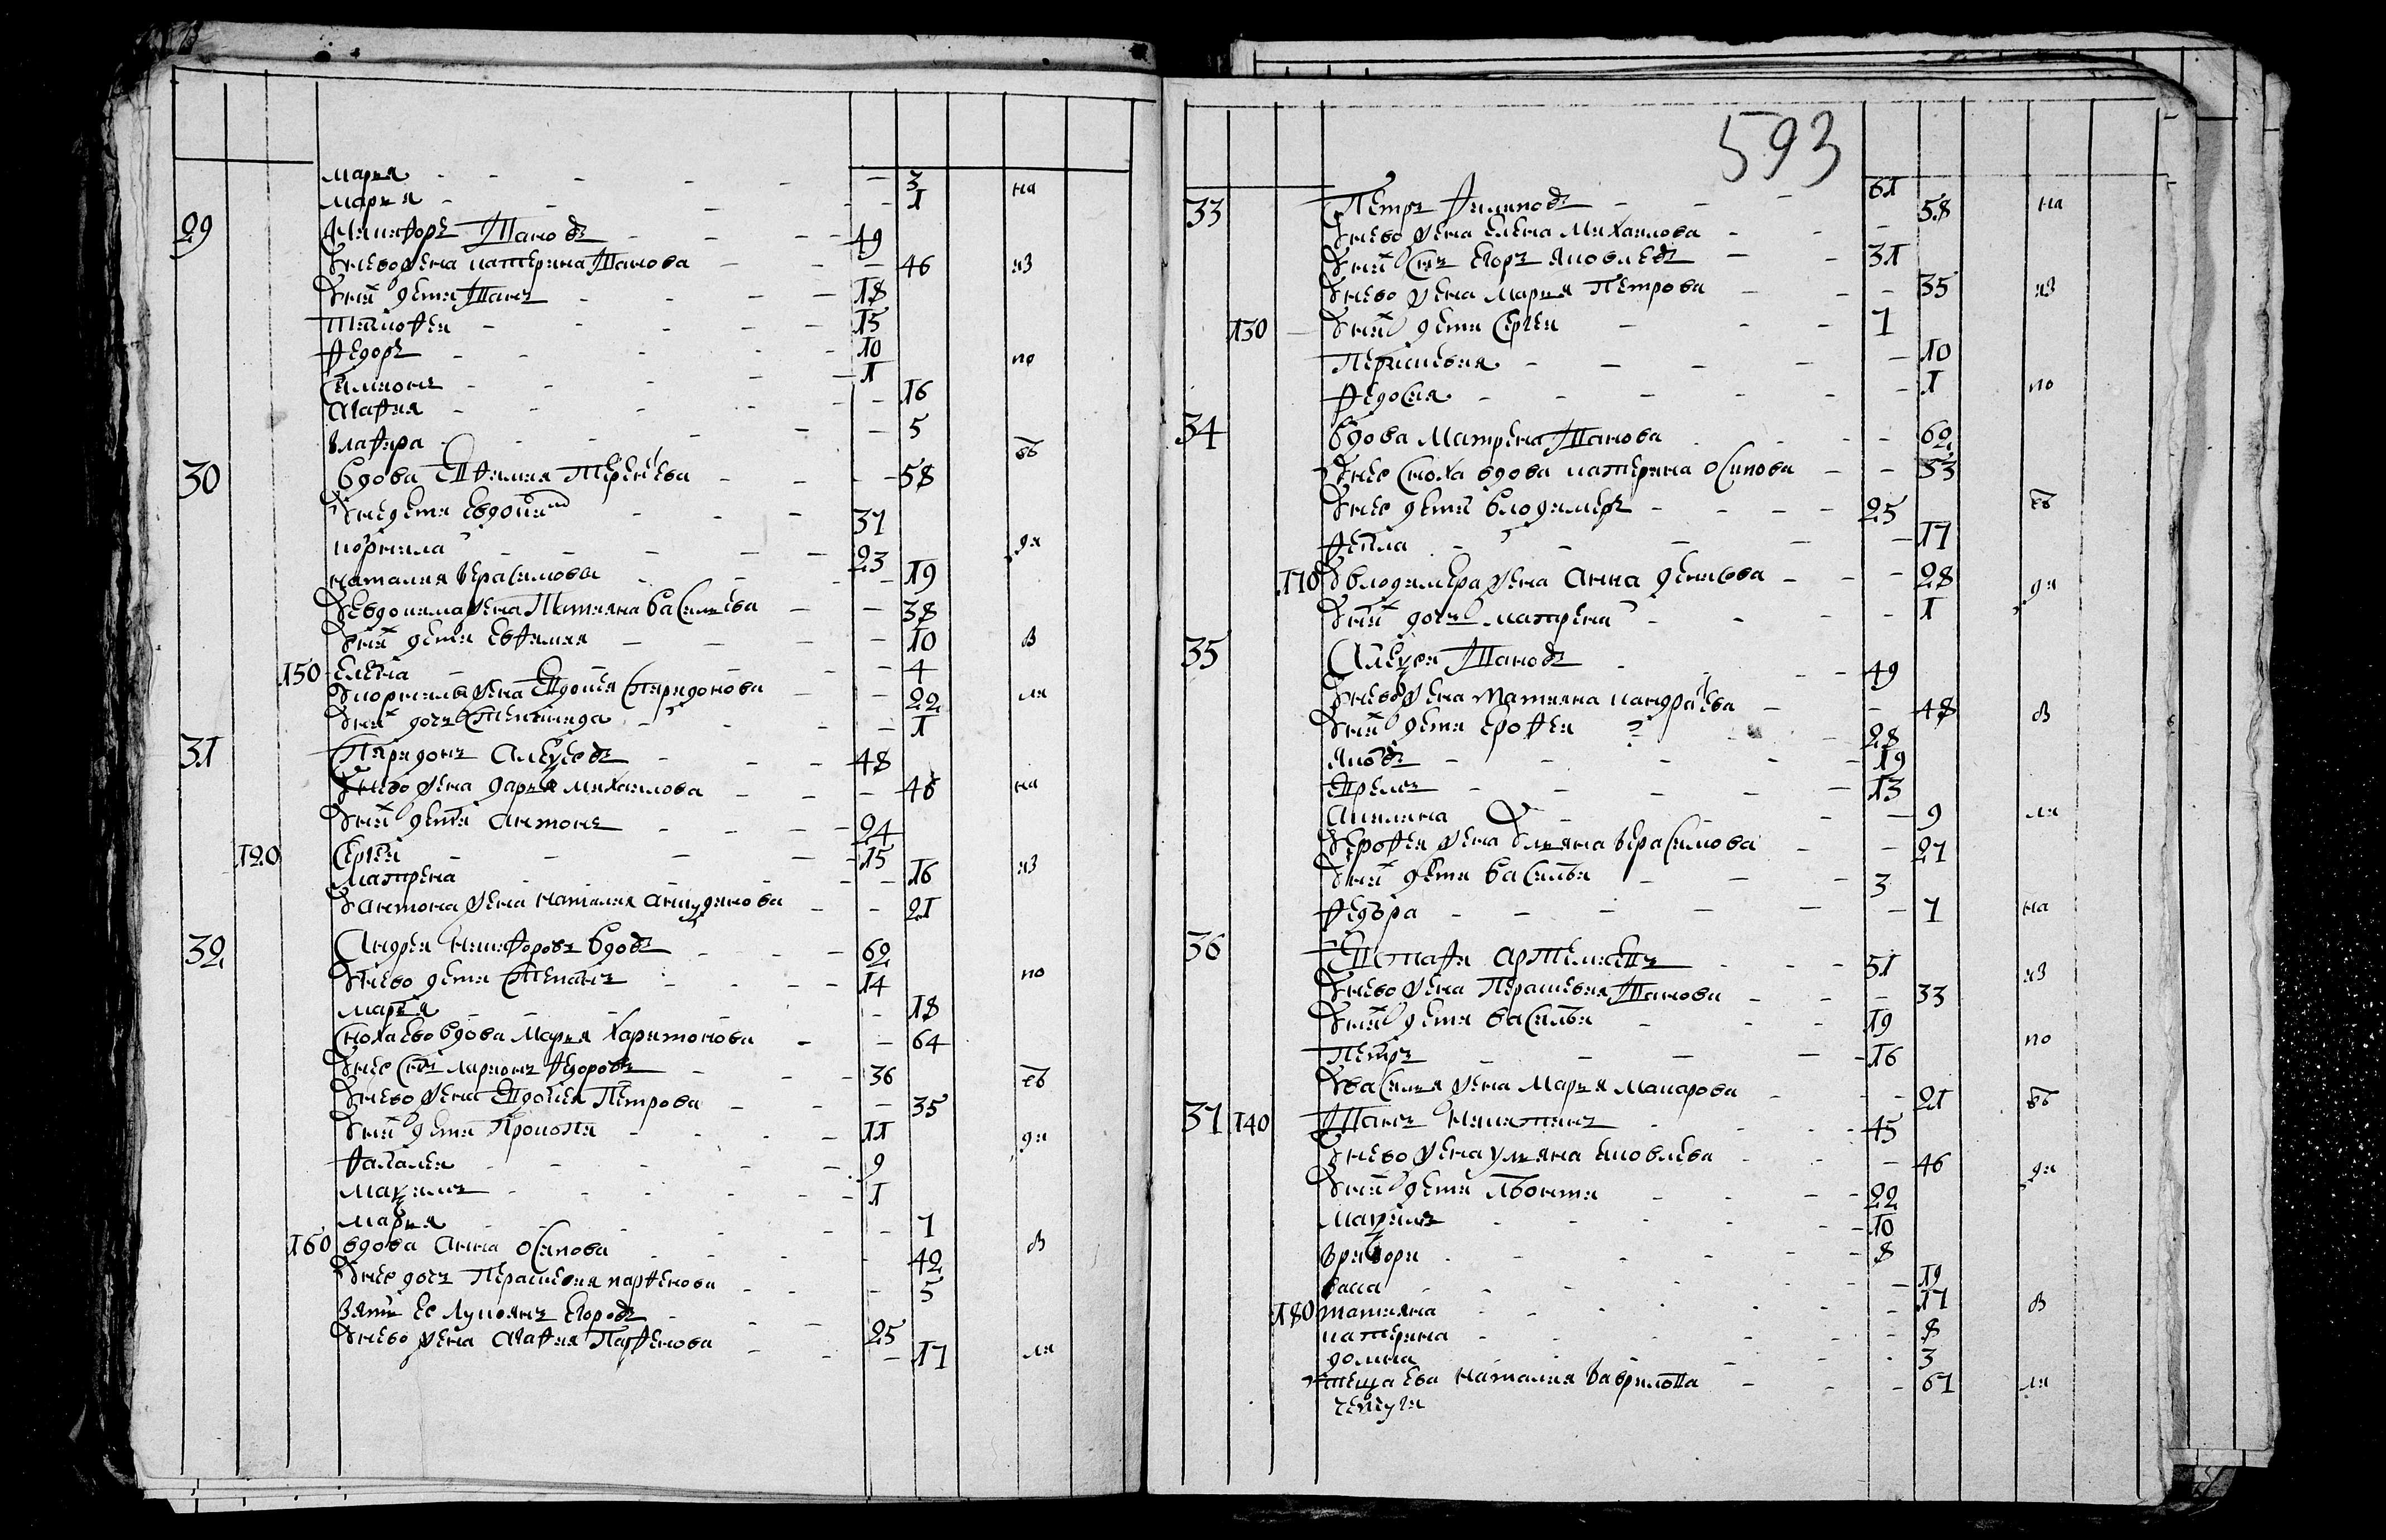 марья - 3 на
марья - 1
29 Никифоръ Iвановъ 49
У нево жена катерина Iванова 46 из
У них дети Iванъ 18
Тимофеи 15
Федоръ 10
Симионъ 1 по
Агафия 16
Глафира 5
30 вдова Евфимия Терентьева 58 ев
У нее дети Евдоким 37
корнила 23 ди
наталия Герасимова 19
У евдокима жена Татияна василиева 38
У них дети Евфимия 10 в
150 Елена 4
У корнилы жена Евдокия Спиридонова 22 ли
У них дочь Степанида 1
31 Спиридонъ Алексеевъ 48
У нево жена дарья михаилова 46 на
У них дети антонъ 24
120 Сергеи 15
Матрена 16 из
У антона жена наталия
21
32 Андреи никифоровъ вдовъ 62
У нево дети Степанъ 14 по
марья 18
Сноха ево вдова Марья Харитонова 64
У нее сынъ ларионъ Федоровъ 36 ев
У нево жена Евдокия Петрова 35
У них дети Прокопеи 11 ди
9
Максимъ 1
марья 7
160 вдова Анна Осипова 42 в
У нее дочь Парасковия парфенова 5
Зять ее Лукоянъ Егоровъ 25
У нево жена Агафия Парфенова 17 ли
593
33 Петръ Филиповъ 61 на
У нево жена елена Михаилова 58
У них сынъ Егоръ Яковлевъ 31
У нево жена Марья Петрова 35 из
130 У них дети Сергеи 7
Парасковия 10
Федосия 1 по
34 Вдова Матрена Iванова 62
У нее сноха вдова катерина Осипова 53
У нее дети владимеръ 25 ев
Фекла 17
170 У владимера жена Анна денисова 28 ди
У них дочь матрена 1
35 Алексеи Iвановъ 49
У нево жена татияна кандратьева 48 в
У них дети ерофеи 28
Яковъ 19
Ефремъ 13
Акилина 9 ли
У ерофея жена Ульяна Герасимова 27
У них дети василеи 3
Федора 7 на
36 Евстафеи Артемиевъ 51 из
У нево жена Парасковия Iванова 33
У них дети василеи 19
Петръ 16 по
У василия жена Марья Макарова 21 ев
37 140 Iванъ никитинъ 45
У нево жена ульяна яковлева 46 ди
У них дети Леонти 22
Максимъ 10
Григори 8
васса 19
180 татияна 17 в
катерина 8
домна 3
теща ева наталия Гаврилова 67 ли